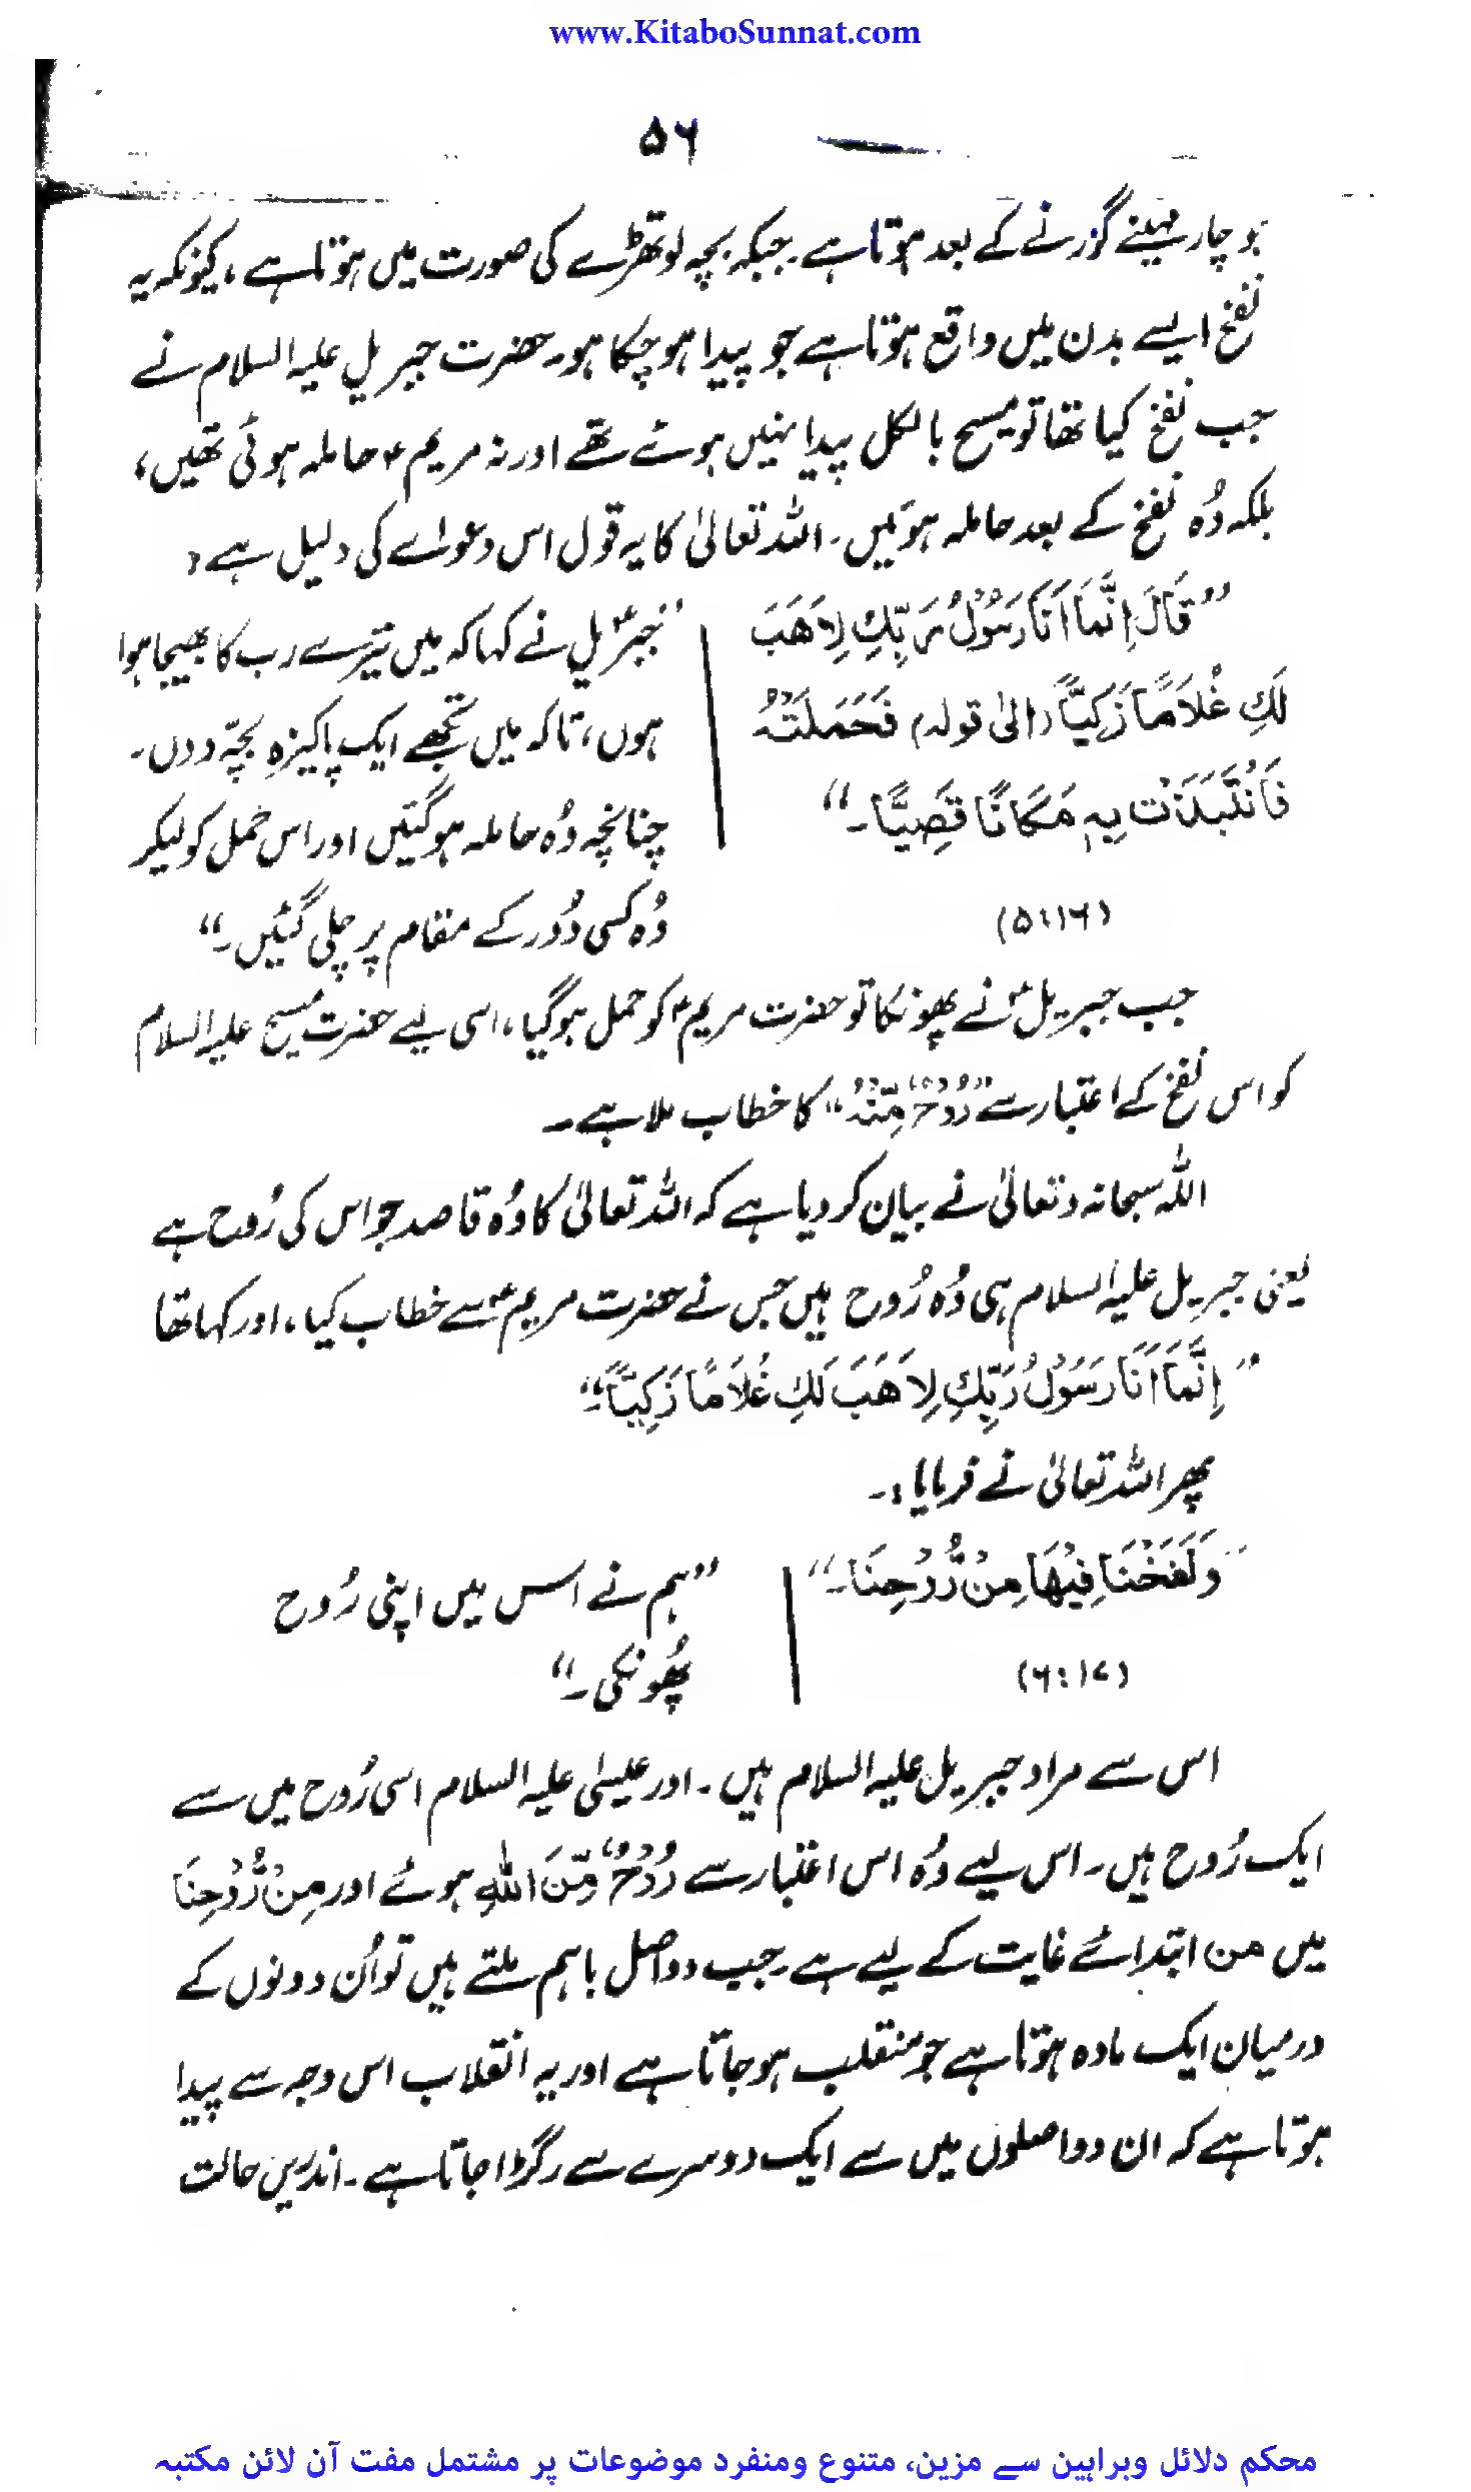 www.KitaboSunnat.com
۵۶
جو چار مہینے گزرنے کے بعد ہوتا ہے جبکہ بچہ لوتھڑے کی صورت میں ہوتا ہے، کیونکہ یہ
نفخ ایسے بدن میں واقع ہوتا ہے جو پیدا ہو چکا ہو۔ حضرت جبریل علیہ السلام نے
جب نفخ کیا تھا تو مسیح بالکل پیدا نہیں ہوئے تھے اور نہ مریمؑ حاملہ ہوئی تھیں،
بلکہ وُہ نفخ کے بعد حاملہ ہوئیں۔ اللہ تعالیٰ کا یہ قول اس دعوٰے کی دلیل ہے:
”قَالَ اِنَّمَا اَنَا رَسُوْلُ رَبِّكِ لِاَهَبَ
لَكِ غُلَامًا زَكِيًّا (الیٰ قولہ) فَحَمَلَتْهُ
فَانْتَبَذَتْ بِهٖ مَكَانًا قَصِيًّا۔“
(۵:۱۶)
”جبریلؑ نے کہا کہ میں تیرے رب کا بھیجا ہوا
ہوں، تاکہ میں تجھے ایک پاکیزہ بچّہ دوں۔
چنانچہ وُہ حاملہ ہوگئیں اور اس حمل کو لیکر
وُہ کسی دُور کے مقام پر چلی گئیں۔“
جب جبریلؑ نے پھونکا تو حضرت مریمؑ کو حمل ہوگیا، اسی لیے حضرت مسیح علیہ السلام
کو اس نفخ کے اعتبار سے ”رُوْحٌ مِّنْهُ“ کا خطاب ملا ہے۔
اللہ سبحانہ وتعالیٰ نے بیان کر دیا ہے کہ اللہ تعالیٰ کا وُہ قاصد جو اس کی رُوح ہے
یعنی جبریل علیہ السلام ہی وُہ رُوح ہیں جس نے حضرت مریمؑ سے خطاب کیا، اور کہا تھا
”اِنَّمَا اَنَا رَسُوْلُ رَبِّكِ لِاَهَبَ لَكِ غُلَامًا زَكِيًّا“
پھر اللہ تعالیٰ نے فرمایا:۔
”وَلَفَخْنَا فِيْهَا مِنْ رُّوْحِنَا۔“
(۶:۱۷)
”ہم نے اس میں اپنی رُوح
پُھونکی۔“
اس سے مراد جبریل علیہ السلام ہیں۔ اور عیسیٰ علیہ السلام اسی رُوح میں سے
ایک رُوح ہیں۔ اس لیے وُہ اس اعتبار سے رُوْحٌ مِّنَ اللهِ ہوئے اور مِنْ رُّوْحِنَا
میں من ابتدائے غایت کے لیے ہے۔ جب دو اصل باہم ملتے ہیں تو اُن دونوں کے
درمیان ایک مادہ ہوتا ہے جو منقلب ہو جاتا ہے اور یہ انقلاب اس وجہ سے پیدا
ہوتا ہے کہ ان دو اصلوں میں سے ایک دوسرے سے رگڑا جاتا ہے۔ اندریں حالت
محکم دلائل وبراہین سے مزین، متنوع ومنفرد موضوعات پر مشتمل مفت آن لائن مکتبہ